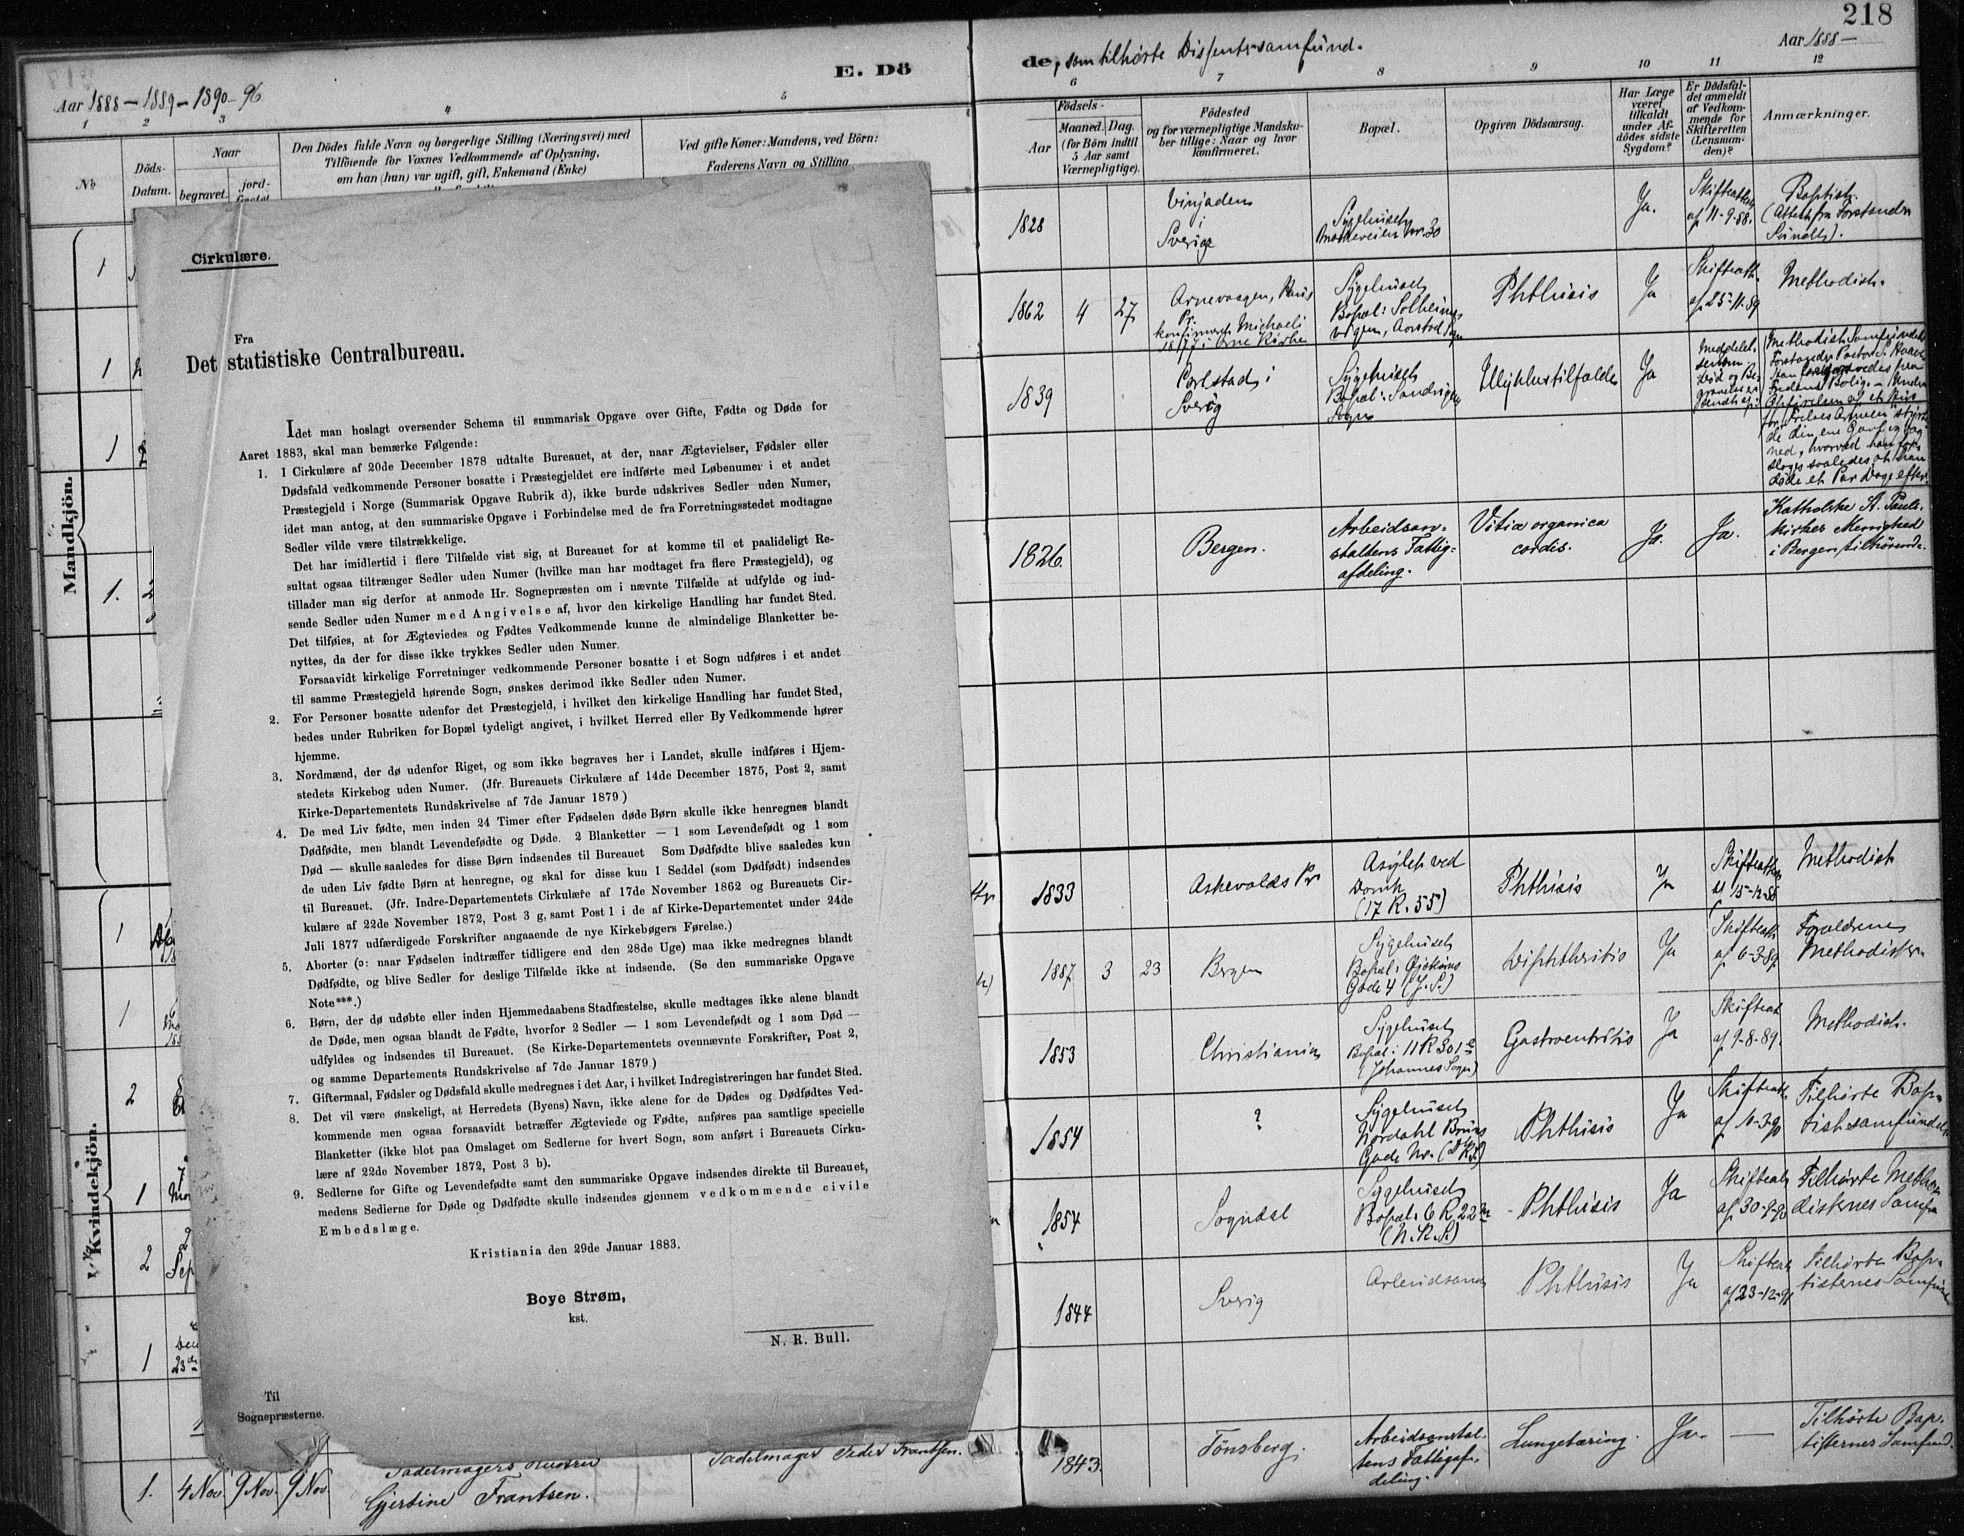 218
E. Dö
de, som tilhørte Dissentersamfund.
Aar 1888 - 1889 - 1890 - 96
Aar 1888 -
1
2
3
4
5
6
7
8
9
10
11
12
No
Döds-
Datum.
Naar
begravet.
jord-
Den Dödes fulde Navn og borgerlige Stilling (Næringsvei) med
Tilföiende for Voxnes Vedkommende af Oplysning,
om han (hun) var ugift, gift, Enkemand (Enke)
Ved gifte Koner: Mandens, ved Börn:
Faderens Navn og Stilling
Födsels-
Aar
Maaned.
Dag.
(for Börn indtil
5 Aar samt
Værnepligtige).
Födested
og for værnepligtige Mandska-
ber tillige: Naar og hvor
konfirmeret.
Bopæl.
Opgiven Dödsaarsag.
Har Læge
været
tilkaldt
under Af-
dödes sidste
Sygdom?
Er Dödsfal-
det anmeldt
af Vedkom-
mende for
Skifteretten
(Lensman-
den)?
Anmærkninger.
Cirkulære.
Fra
Det statistiske Centralbureau.
Idet man hoslagt oversender Schema til summarisk Opgave over Gifte, Fødte og Døde for
Aaret 1883, skal man bemærke Følgende:
1. I Cirkulære af 20de December 1878 udtalte Bureauet, at der, naar Ægtevielser, Fødsler eller
Dødsfald vedkommende Personer bosatte i Præstegjeldet ere indførte med Løbenumer i et andet
Præstegjeld i Norge (Summarisk Opgave Rubrik d), ikke burde udskrives Sedler uden Numer,
idet man antog, at den summariske Opgave i Forbindelse med de fra Forretningsstedet modtagne
Sedler vilde være tilstrækkelige.
Det har imidlertid i flere Tilfælde vist sig, at Bureauet for at komme til et paalideligt Re-
sultat ogsaa tiltrænger Sedler uden Numer (hvilke man har modtaget fra flere Præstegjeld), og
tillader man sig derfor at anmode Hr. Sognepræsten om i nævnte Tilfælde at udfylde og ind-
sende Sedler uden Numer med Angivelse af, hvor den kirkelige Handling har fundet Sted.
Det tilføies, at for Ægteviedes og Fødtes Vedkommende kunne de almindelige Blanketter be-
nyttes, da der for disse ikke trykkes Sedler uden Numer.
Forsaavidt kirkelige Forretninger vedkommende Personer bosatte i et Sogn udføres i et andet
til samme Præstegjeld hørende Sogn, ønskes derimod ikke Sedler uden Numer.
2. For Personer bosatte udenfor det Præstegjeld, i hvilket den kirkelige Handling har fundet Sted,
bedes under Rubriken for Bopæl tydeligt angivet, i hvilket Herred eller By Vedkommende hører
hjemme.
3. Nordmænd, der dø udenfor Riget, og som ikke begraves her i Landet, skulle indføres i Hjem-
stedets Kirkebog uden Numer. (Jfr. Bureauets Cirkulære af 14de December 1875, Post 2, samt
Kirke-Departementets Rundskrivelse af 7de Januar 1879)
4. De med Liv fødte, men inden 24 Timer efter Fødselen døde Børn skulle ikke henregnes blandt
Dødfødte, men blandt Levendefødte og Døde. 2 Blanketter — 1 som Levendefødt og 1 som
Død — skulle saaledes for disse Børn indsendes til Bureauet Som Dødfødte blive saaledes kun
de uden Liv fødte Børn at henregne, og skal for disse kun 1 Seddel (som Dødfødt) indsendes
til Bureauet. (Jfr. Indre-Departementets Cirkulære af 17de November 1862 og Bureauets Cir-
kulære af 22de November 1872, Post 3 g, samt Post 1 i de af Kirke-Departementet under 24de
Juli 1877 udfærdigede Forskrifter angaaende de nye Kirkebøgers Førelse.)
5. Aborter (ɔ: naar Fødselen indtræffer tidligere end den 28de Uge) maa ikke medregnes blandt
Dødfødte, og blive Sedler for deslige Tilfælde ikke at indsende. (Se den summariske Opgave
Note ***.)
6. Børn, der dø udøbte eller inden Hjemmedaabens Stadfæstelse, skulle medtages ikke alene blandt
de Døde, men ogsaa blandt de Fødte, hvorfor 2 Sedler — 1 som Levendefødt og 1 som Død —
udfyldes og indsendes til Bureauet. (Se Kirke-Departementets ovennævnte Forskrifter, Post 2,
og samme Departements Rundskrivelse af 7de Januar 1879)
7. Giftermaal, Fødsler og Dødsfald skulle medregnes i det Aar, i hvilket Indregistreringen har fundet Sted.
8. Det vil være ønskeligt, at Herredets (Byens) Navn, ikke alene for de Dødes og Dødfødtes Ved-
kommende men ogsaa forsaavidt betræffer Ægteviede og Fødte, anføres paa samtlige specielle
Blanketter (ikke blot paa Omslaget om Sedlerne for hvert Sogn, som anført i Bureauets Cirku-
lære af 22de November 1872, Post 3 b).
9. Sedlerne for Gifte og Levendefødte samt den summariske Opgave indsendes direkte til Bureauet,
medens Sedlerne for Døde og Dødfødte skulle indsendes gjennem vedkommende civile
Embedslæge.
Kristiania den 29de Januar 1883.
Boye Strøm,
kst.
N. R. Bull.
Til
Sognepræsterne.
Mandkjön.
1
1
1
1.
Kvindekjön.
1
1
2
1
2
1
1828
i
Sverige
Sygehuset
no. 30
Ja.
Skifteatt.
af 11-9-88.
Baptist.
(Attest fra Forstander
1862 4 27
Arnevaagen, Haus
Pr.
konfirmeret Michaeli
1877 i Arne Kirke
Sygehuset
Bopæl: Solheims-
Aarstad Sogn
Phthisis
Ja
Skifteatt.
af 25-11-89
Methodist.
1839
Carlstad i
Sverig
Sygehuset
Bopæl: Sandvigens
Sogn
Ulykkestilfælde
Ja
Methodist Samfundets
for "Frelses Armeen" styrte-
døde et Par Dage efter.
1826.
Bergen.
Arbeidsan-
staltens Fattig-
afdeling.
Vitia organica
cordis.
Ja.
Ja.
Katholske St. Pauls
Kirkes Menighed
i Bergen tilhørende.
1833
Askevolds Pr
Asylet ved
Domk
(17 R. 55)
Phthisis
Ja
Skifteatt.
af 15-12-88
Methodist
1887 3 23
Bergen
Sygehuset
Gade 4 (J. S.)
Diphtheritis
Ja
Skifteatt
af 6-3-89
Forældrene
Methodister
1853
Christiania
Sygehuset
Bopæl: 11 R 30 1 c
(Johannes Sogn)
Gastroenteritis
Ja
Skifteat
af 9-8-89.
Methodist.
1854
?
Sygehuset
Nordahl Bruns
Gade No.
Phthisis
Ja
Skifteatt.
Tilhørte Bap-
tistsamfundet
1854
Sogndal
Sygehuset
Bopæl: 6 R 22
(N. K. S.)
Phthisis
Ja
Skifteatt
Tilhørte Metho-
disternes Samfund
1844
Sverig
Arbeidsanst
Phthisis
Ja
Skifteatt
Tilhørte Bap-
tisternes Samfund
1. 4 Nov 9 Nov. 9 Nov.
Sadelmagers Hustru
Gjertine Frantsen.
Sadelmager Peder Frantsen.
1843.
Tönsberg.
Arbeidsanstal-
tens Fattigaf-
deling.
Lungetæring.
Ja.
—
Tilhörte Bap-
tisternes Samfund.